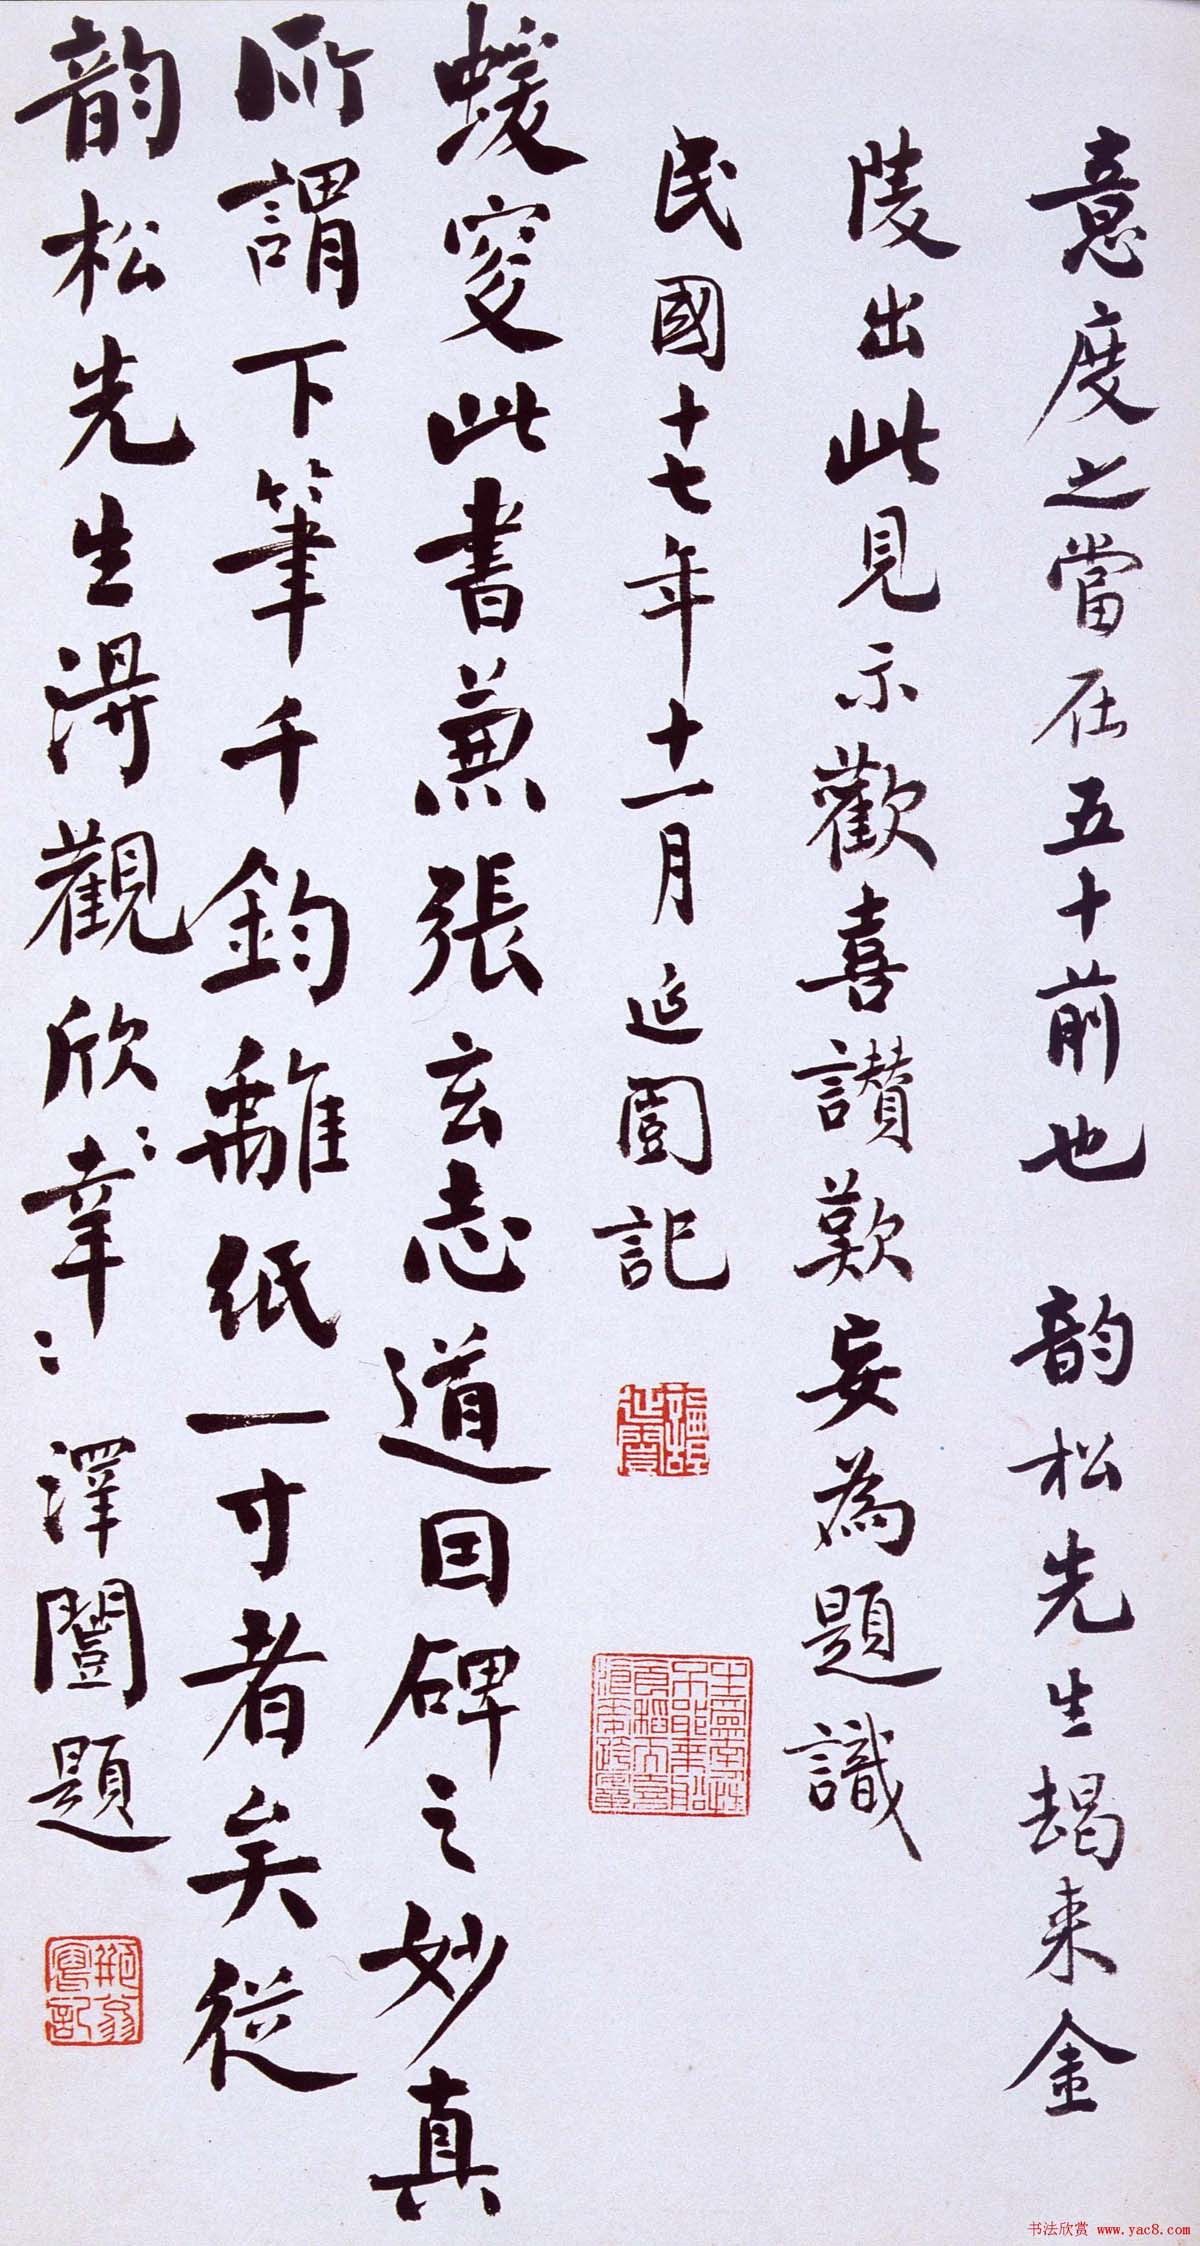 意度之當在五十前也 韵松先生朅来金
陵出此見示歡喜讃歎妄為題識
民國十七年十一月延闓記
蝯叟此書兼張玄志道因碑之妙真
所謂下筆千鈞離紙一寸者矣從
韵松先生淂觀欣〻幸〻澤闓題
书法欣赏 www.yac8.com